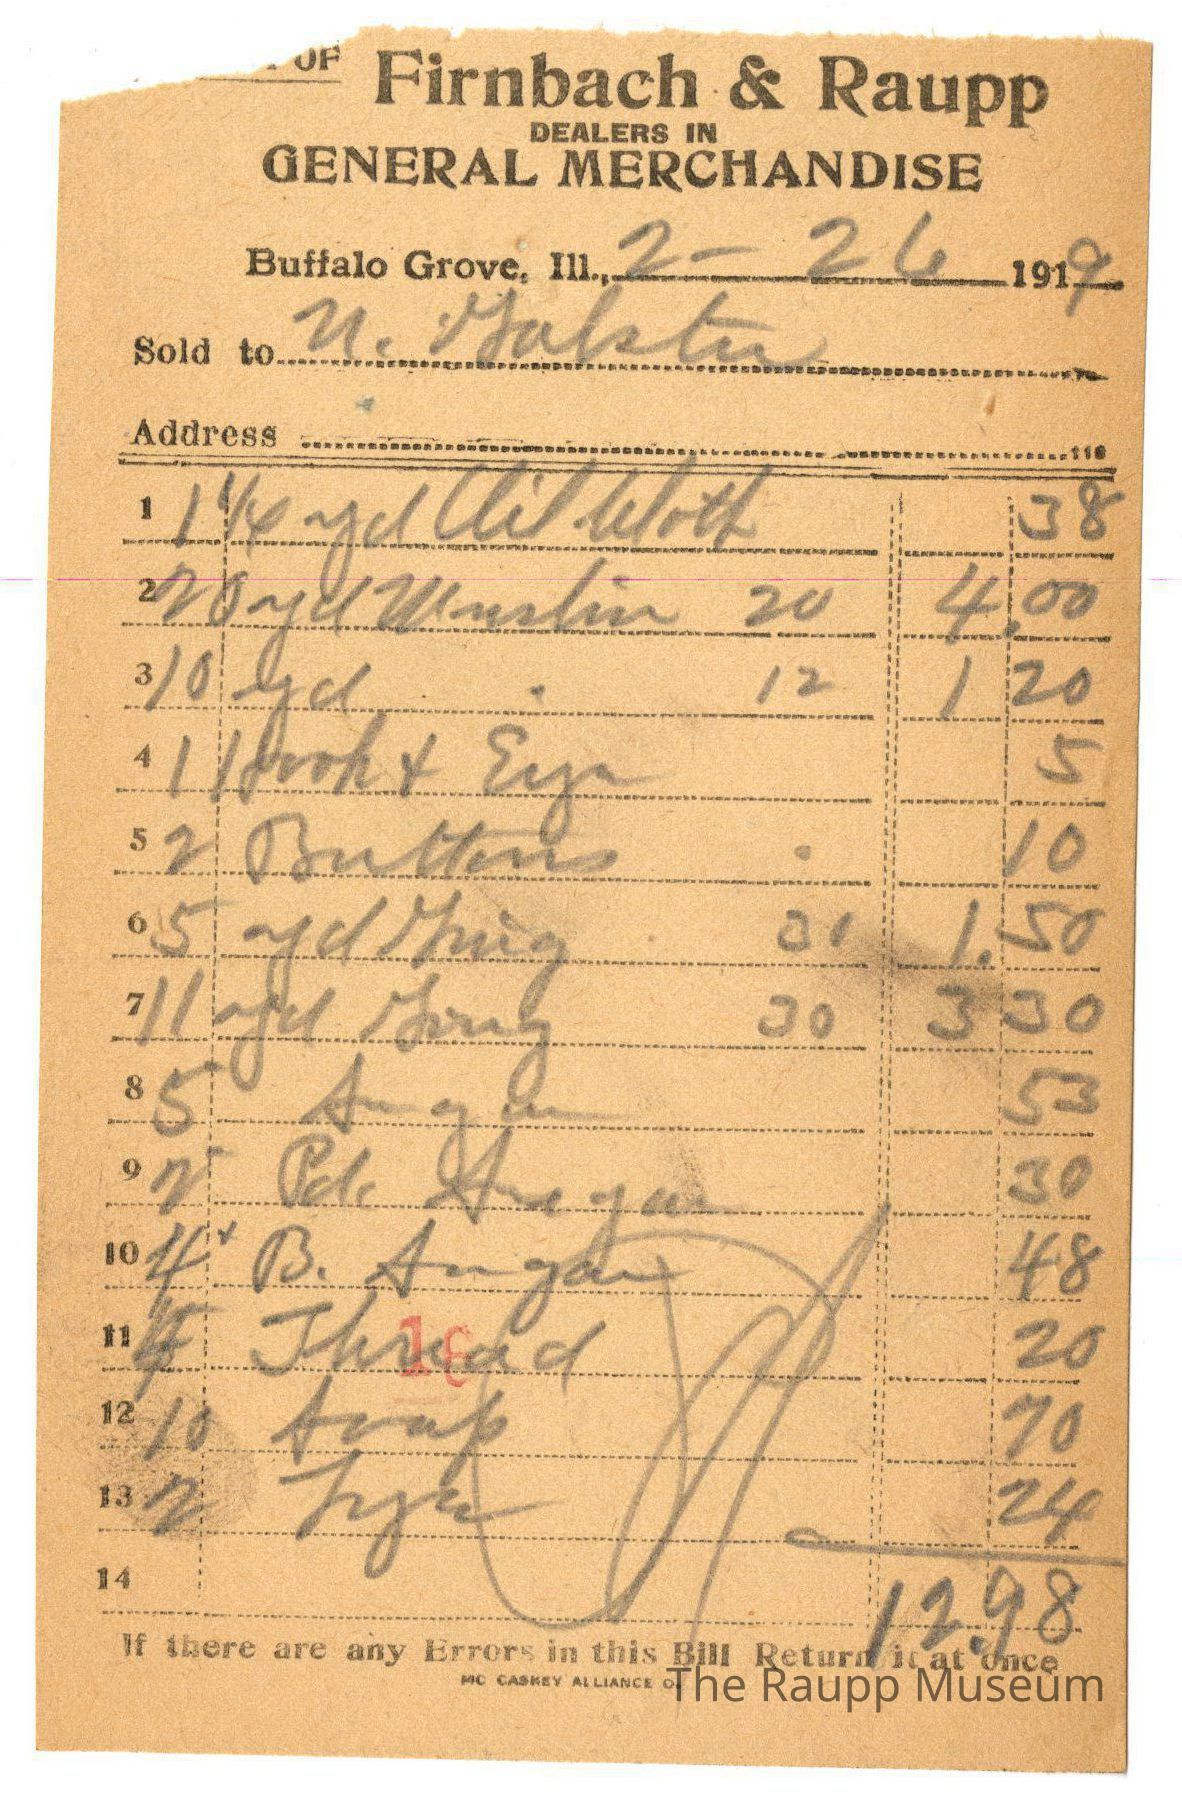 OF Firnbach & Raupp
DEALERS IN
GENERAL MERCHANDISE
Buffalo Grove, Ill., 2 - 26 1919
Sold to N.
Address
118
1 1 1/4 yd Oil Cloth 38
2 20 yd Muslin 20 4.00
3 10 yd " 12 1 20
4 1 Hook & Eye 5
5 2 Buttons 10
6 5 yd Ging 30 1.50
7 11 yd Ging 30 3 30
8 5 Sugar 53
9 2 Pd. Sugar 30
10 4 B. Sugar 48
11 4 Thread 20
16
12 10 Soap 70
13 2 Lye 24
14 12.98
If there are any Errors in this Bill Return it at once
MC CASKEY ALLIANCE O.
The Raupp Museum